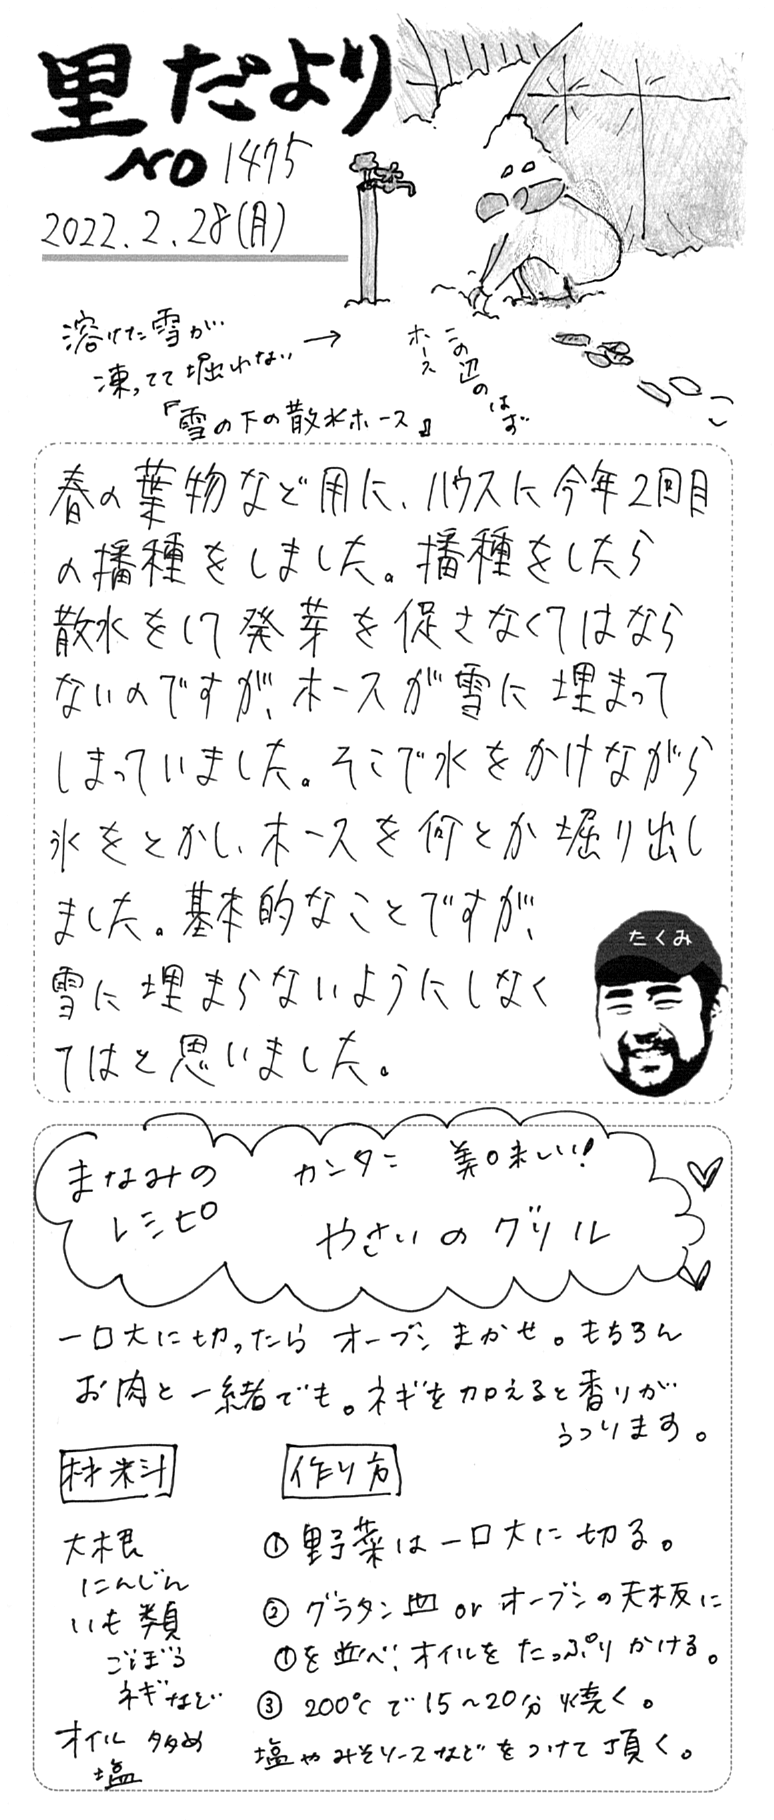 里だより
NO 1475
2022.2.28(月)
溶けた雪が
凍ってて堀れない →
『雪の下の散水ホース』
この辺のはず
ホース
春の葉物など用に、ハウスに今年2回目
の播種をしました。播種をしたら
散水をして発芽を促さなくてはなら
ないのですが、ホースが雪に埋まって
しまっていました。そこで水をかけながら
氷をとかし、ホースを何とか堀り出し
ました。基本的なことですが、
雪に埋まらないようにしなく
てはと思いました。
たくみ
まなみの
レシピ
カンタン 美味しい!
やさいのグリル
一口大に切ったらオーブンまかせ。もちろん
お肉と一緒でも。ネギを加えると香りが
うつります。
材料
大根
にんじん
いも類
ごぼう
ネギなど
オイル 多め
塩
作り方
① 野菜は一口大に切る。
② グラタン皿 or オーブンの天板に
①を並べ、オイルをたっぷりかける。
③ 200℃で15～20分焼く。
塩やみそソースなどをつけて頂く。